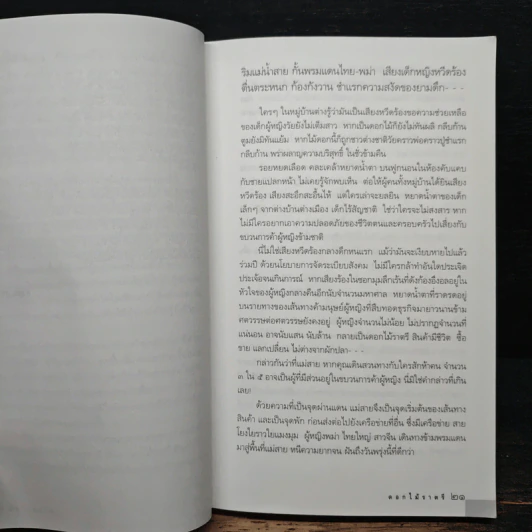 ริมแม่น้ำสาย กั้นพรมแดนไทย-พม่า เสียงเด็กหญิงหวีดร้อง
ตื่นตระหนก ก้องกังวาน ชำแรกความสงัดของยามดึก - - -
ใครๆ ในหมู่บ้านต่างรู้ว่ามันเป็นเสียงหวีดร้องขอความช่วยเหลือ
ของเด็กผู้หญิงวัยยังไม่เดียงสา หากเป็นดอกไม้ก็ยังไม่ทันผลิ กลีบก้าน
ตูมยังมิทันแย้ม หากไม้ดอกนี้ก็ถูกชาวต่างชาติวัยคราวพ่อคราวปู่ชำแรก
กลีบก้าน พร่าผลาญความบริสุทธิ์ ในชั่วข้ามคืน
รอยหยดเลือด คละเคล้าหยาดน้ำตา บนฟูกนอนในห้องคับแคบ
กับชายแปลกหน้า ไม่เคยรู้จักพบเห็น ต่อให้ผู้คนทั้งหมู่บ้านได้ยินเสียง
หวีดร้อง เสียงสะอึกสะอื้นไห้ แต่ใครเล่าจะยลยิน หยาดน้ำตาของเด็ก
เล็กๆ จากต่างบ้านต่างเมือง เด็กไร้สัญชาติ ใช่ว่าใครจะไม่สงสาร หาก
ไม่มีใครอยากเอาความปลอดภัยของชีวิตตนและครอบครัวไปเสี่ยงกับ
ขบวนการค้าผู้หญิงข้ามชาติ
นี่ไม่ใช่เสียงหวีดร้องกลางดึกหนแรก แม้ว่ามันจะเงียบหายไปแล้ว
ร่วมปี ด้วยนโยบายการจัดระเบียบสังคม ไม่มีใครกล้าทำอันใดประเจิด
ประเจ้อจนเกินการณ์ หากเสียงร้องในซอกมุมลึกเร้นที่ดังก้องอึงอลอยู่ใน
หัวใจของผู้หญิงกลางคืนอีกนับจำนวนมหาศาล หยาดน้ำตาที่ราดรดอยู่
บนรายทางของเส้นทางค้ามนุษย์ผู้หญิงที่สืบทอดธุรกิจมายาวนานข้าม
ศตวรรษต่อศตวรรษยังคงอยู่ ผู้หญิงจำนวนไม่น้อย ไม่ปรากฏจำนวนที่
แน่นอน อาจนับแสน นับล้าน กลายเป็นดอกไม้ราตรี สินค้ามีชีวิต ซื้อ
ขาย แลกเปลี่ยน ไม่ต่างจากผักปลา - - -
กล่าวกันว่าที่แม่สาย หากคุณเดินสวนทางกับใครสักห้าคน จำนวน
๓ ใน ๕ อาจเป็นผู้ที่มีส่วนอยู่ในขบวนการค้าผู้หญิง นี่มิใช่คำกล่าวที่เกิน
เลย!
ด้วยความที่เป็นจุดผ่านแดน แม่สายจึงเป็นจุดเริ่มต้นของเส้นทาง
สินค้า และเป็นจุดพัก ก่อนส่งต่อไปยังเครือข่ายที่อื่น ซึ่งมีเครือข่าย สาย
โยงใยราวใยแมงมุม ผู้หญิงพม่า ไทยใหญ่ สาวจีน เดินทางข้ามพรมแดน
มาสู่พื้นที่แม่สาย หนีความยากจน ฝันถึงวันพรุ่งนี้ที่ดีกว่า
ดอกไม้ราตรี ๒๑